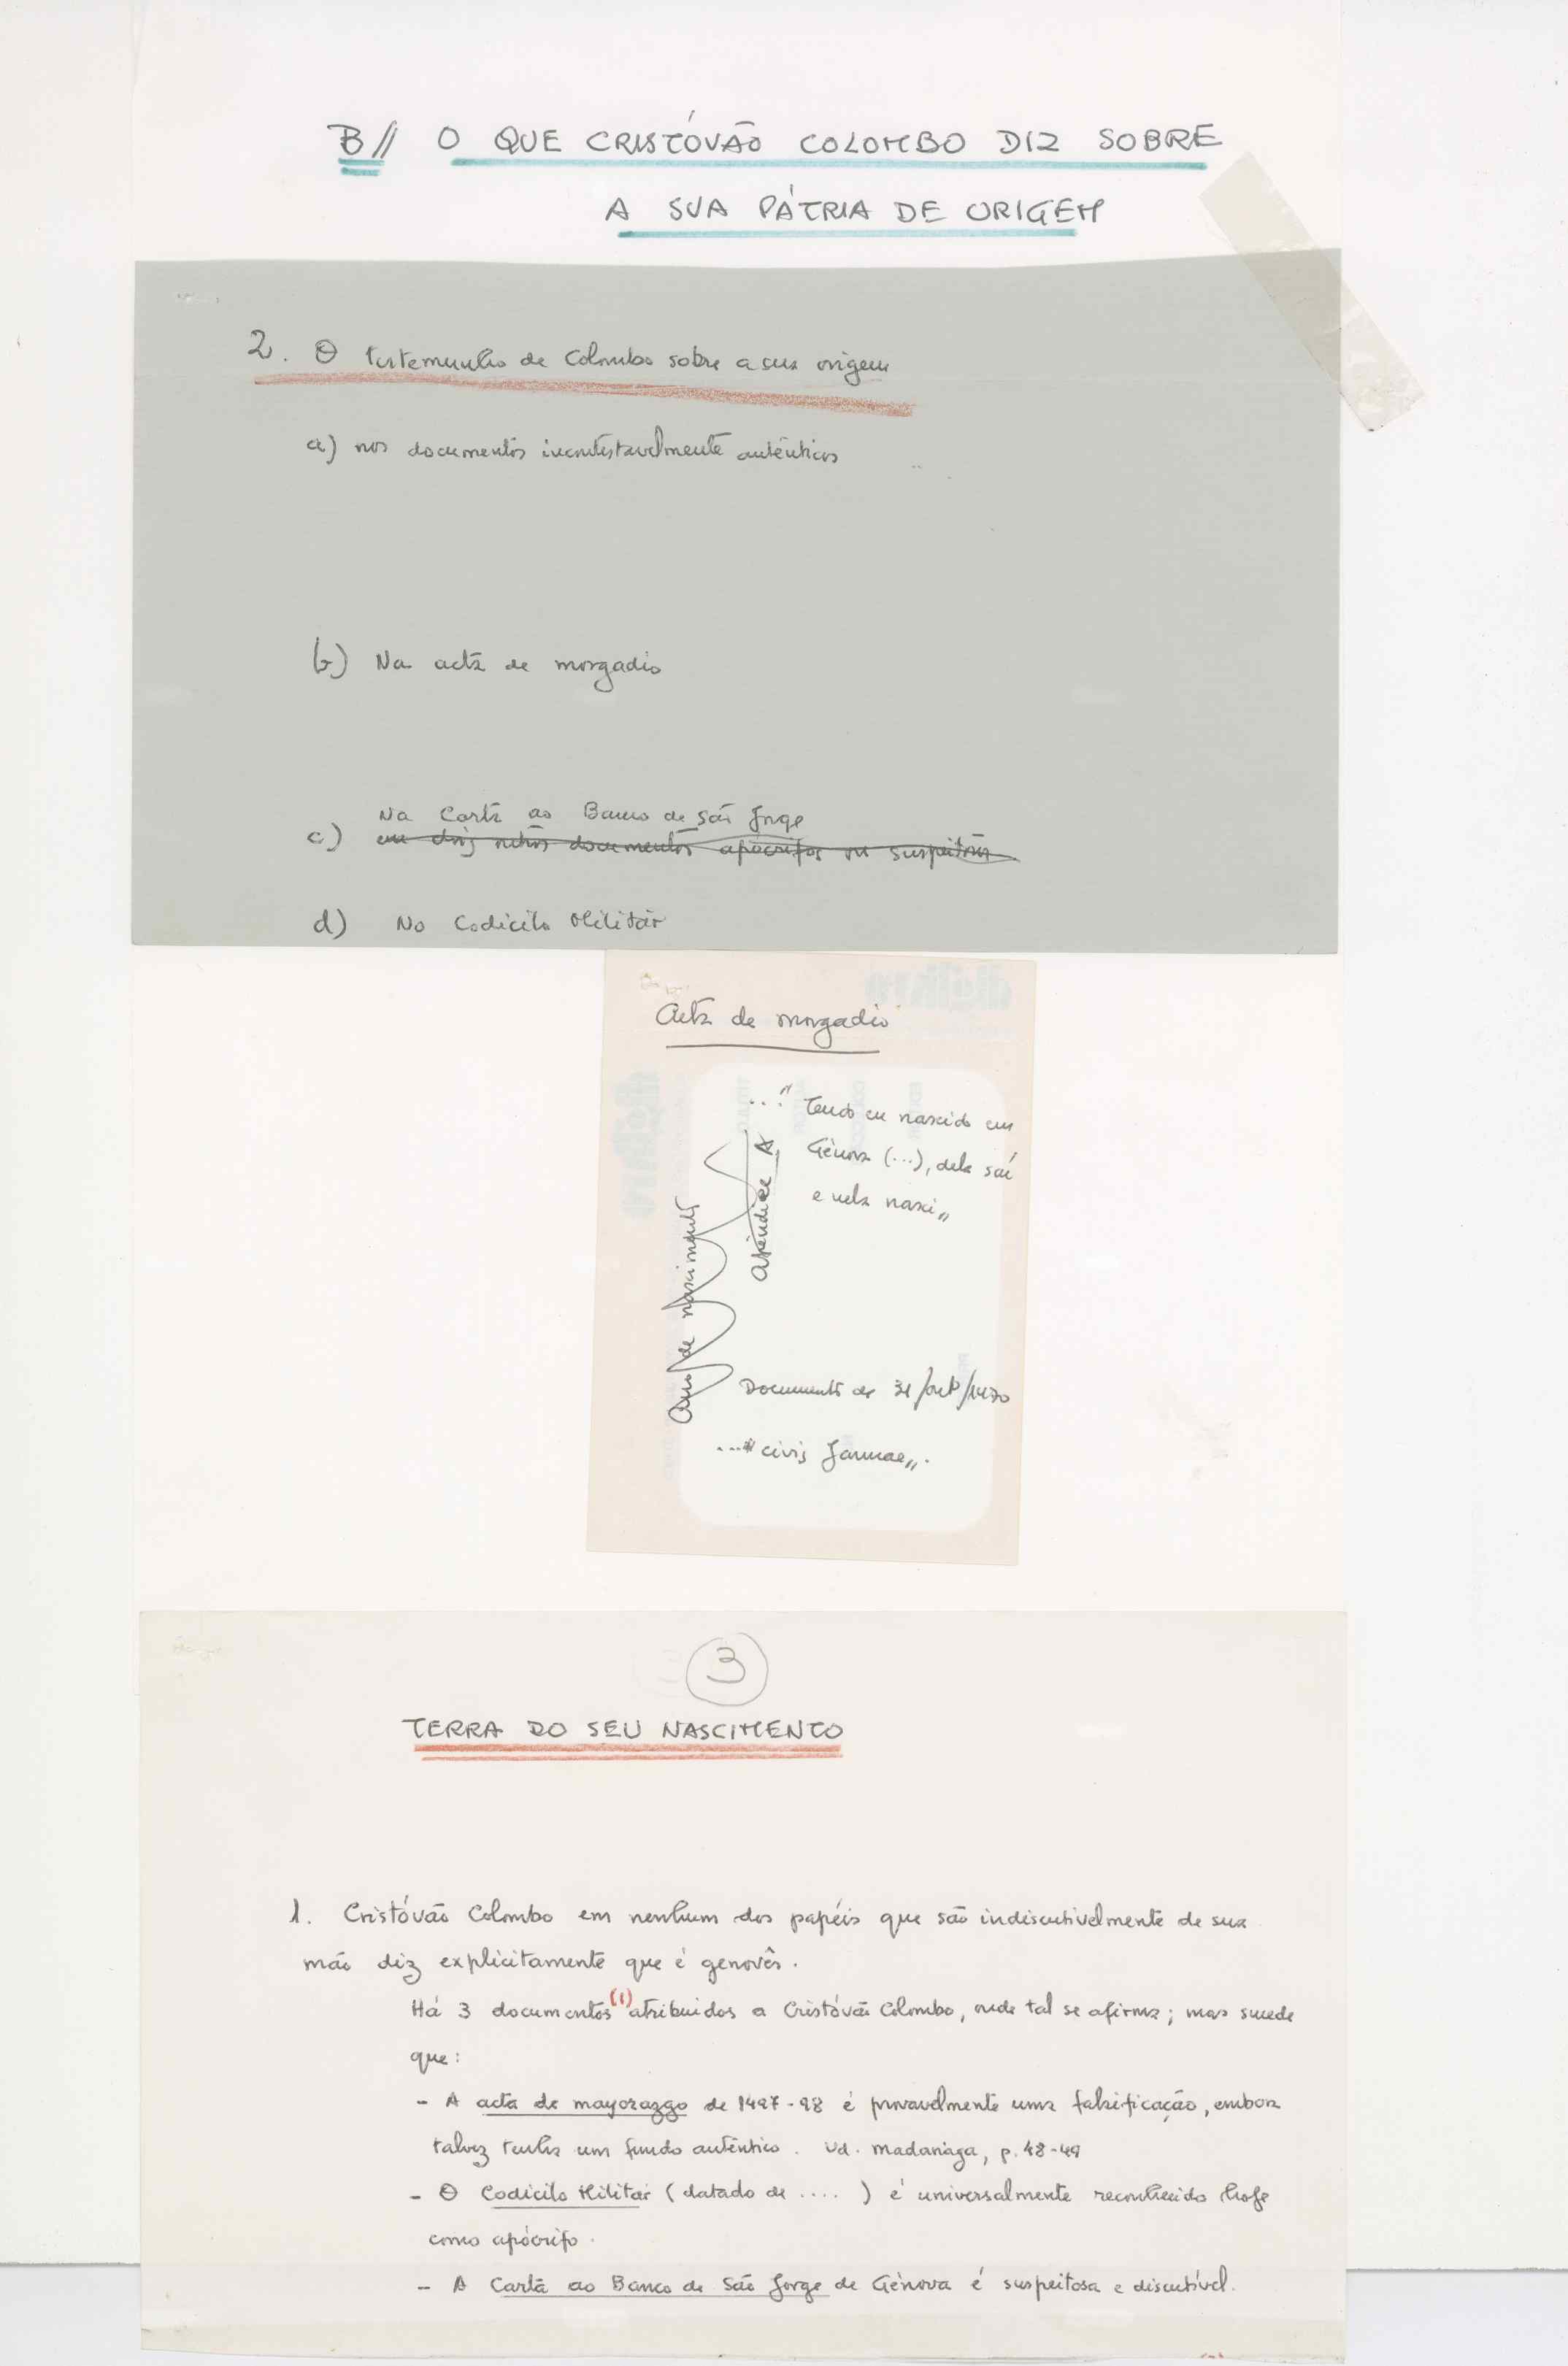 B// O QUE CRISTÓVÃO COLOMBO DIZ SOBRE
A SUA PÁTRIA DE ORIGEM
2. O testemunho de Colombo sobre a sua origem
a) nos documentos incontestavelmente autênticos
b) Na acta de morgadio
Na Carta ao Banco de São Jorge
c) em dois outros documentos apócrifos ou suspeitosos
d) No Codicilo Militar
Acta de morgadio
..." Tendo eu nascido em
Génova (...), dela saí
e nela nasci"
Apêndice A
Ano de nascimento
Documento de 31/out/1470
..."civis Januae".
3
TERRA DO SEU NASCIMENTO
1. Cristóvão Colombo em nenhum dos papéis que são indiscutivelmente de sua
mão diz explicitamente que é genovês.
Há 3 documentos (1) atribuidos a Cristóvão Colombo, onde tal se afirma; mas sucede
que:
- A acta de mayorazgo de 1497-98 é provavelmente uma falsificação, embora
talvez tenha um fundo autêntico. Vd. Madariaga, p. 48-49
- O Codicilo Militar (datado de .... ) é universalmente reconhecido hoje
como apócrifo.
- A Carta ao Banco de São Jorge de Génova é suspeitosa e discutível.